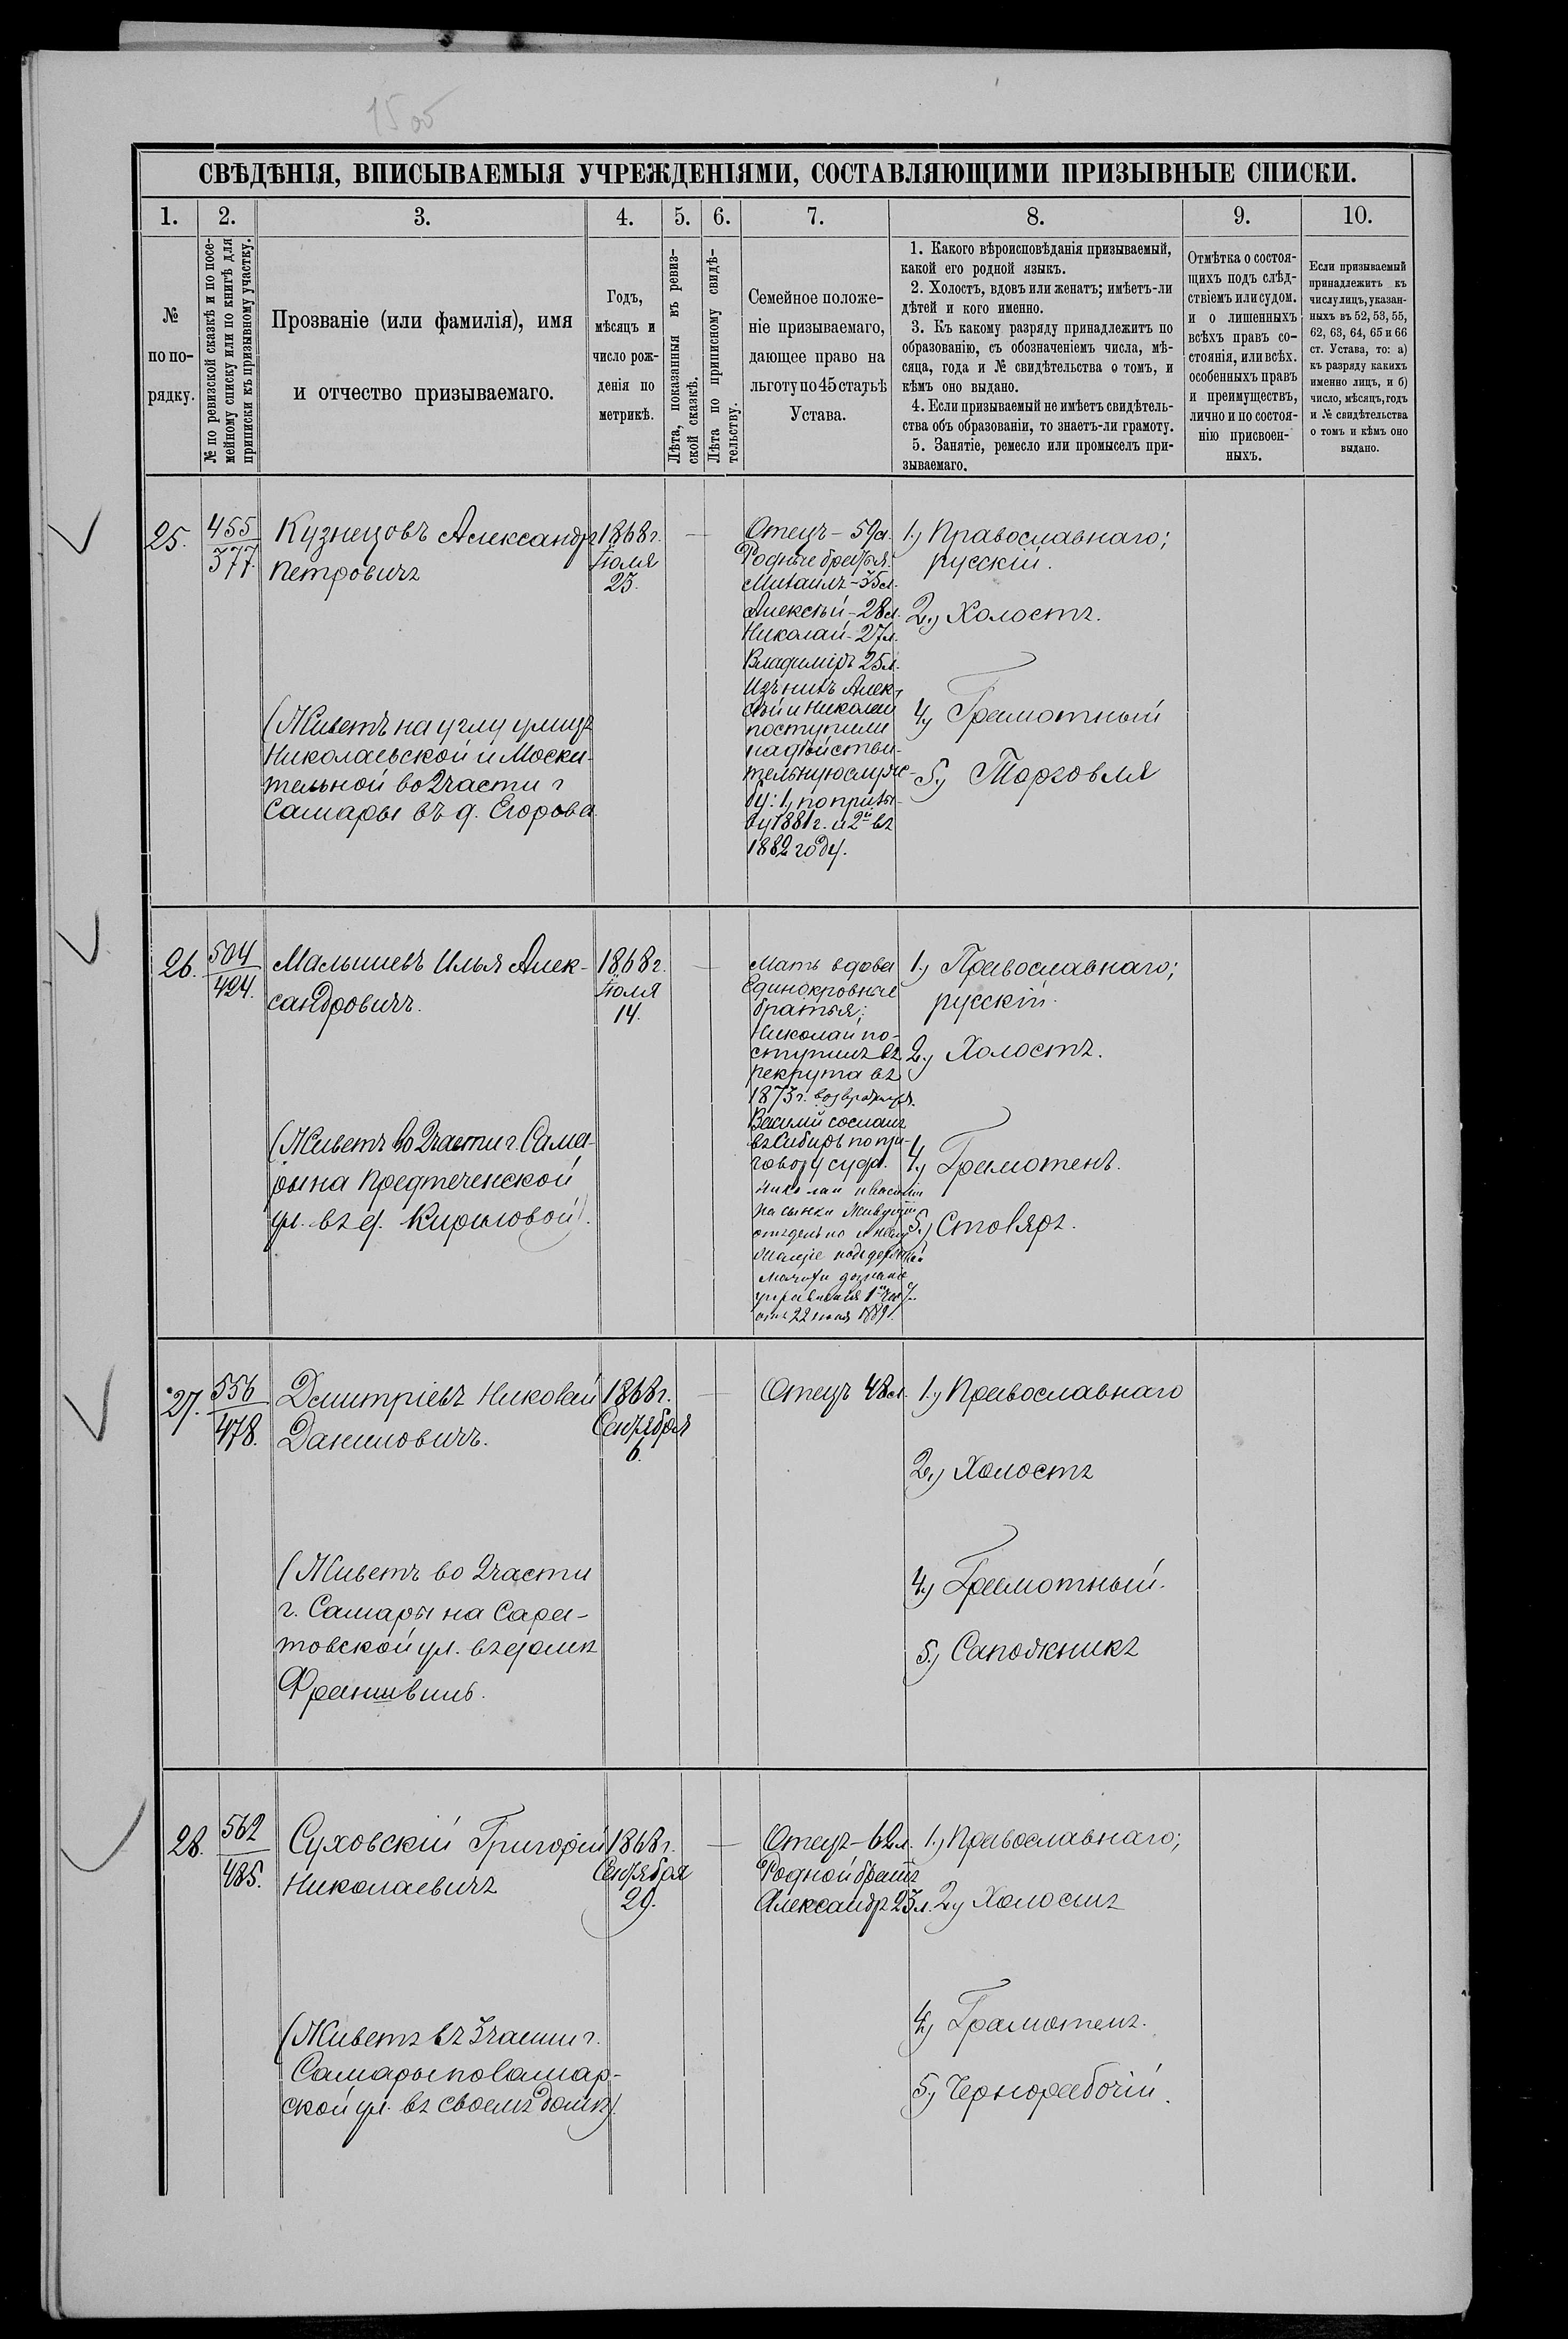 15об
СВѢДѢНІЯ, ВПИСЫВАЕМЫЯ УЧРЕЖДЕНІЯМИ, СОСТАВЛЯЮЩИМИ ПРИЗЫВНЫЕ СПИСКИ.
1.
2.
3.
4.
5.
6.
7.
8.
9.
10.
№
по по-
рядку.
№ по ревизской сказкѣ и по посе-
мейному списку или по книгѣ для
приписки къ призывному участку.
Прозваніе (или фамилія), имя
и отчество призываемаго.
Годъ,
мѣсяцъ и
число рож-
денія по
метрикѣ.
Лѣта, показанныя въ ревиз-
ской сказкѣ.
Лѣта по приписному свидѣ-
тельству.
Семейное положе-
ніе призываемаго,
дающее право на
льготу по 45 статьѣ
Устава.
1. Какого вѣроисповѣданія призываемый,
какой его родной языкъ.
2. Холостъ, вдовъ или женатъ; имѣетъ-ли
дѣтей и кого именно.
3. Къ какому разряду принадлежитъ по
образованію, съ обозначеніемъ числа, мѣ-
сяца, года и № свидѣтельства о томъ, и
кѣмъ оно выдано.
4. Если призываемый не имѣетъ свидѣтель-
ства объ образованіи, то знаетъ-ли грамоту.
5. Занятіе, ремесло или промыселъ при-
зываемаго.
Отмѣтка о состоя-
щихъ подъ слѣд-
ствіемъ или судом.
и о лишенныхъ
всѣхъ правъ со-
стоянія, или всѣх.
особенныхъ правъ
и преимуществъ,
лично и по состоя-
нію присвоен-
ныхъ.
Если призываемый
принадлежитъ къ
числу лицъ, указан-
ныхъ въ 52, 53, 55,
62, 63, 64, 65 и 66
ст. Устава, то: а)
къ разряду какихъ
именно лицъ, и б)
число, мѣсяцъ, годъ
и № свидѣтельства
о томъ и кѣмъ оно
выдано.
25.
455
377.
Кузнецовъ Александръ
Петровичъ
(Живетъ на углу улицъ
Николаевской и Моска-
тельной во 2 части г
Самары въ д. Егорова
1868 г.
Іюля
23.
Отецъ – 59 л.
Родные братья:
Михаилъ – 35 л.
Алексѣй – 28 л.
Николай – 27 л.
Владиміръ 25 л.
Изъ нихъ Алек-
сѣй и Николай
поступили
на дѣйстви-
тельную служ-
бу: 1, по призы-
ву 1881 г. и 2й въ
1882 году.
1., Православнаго;
русскій.
2., Холостъ.
4, Грамотный
5, Торговля
26.
504
424.
Малышевъ Илья Алек-
сандровичъ.
(Живетъ во 2 части г. Сама-
ры на Предтеченской
ул. въ д. Кириловой).
1868 г.
Іюля
14.
Мать вдова
Единокровные
братья:
Николай по-
ступилъ въ
рекрута въ
1873 г. возвратился.
Василій сосланъ
въ Сибирь по при-
говору суда.
Николай и Василій
пасынки живущіе
отдельно
1., Православнаго;
русскій.
2., Холостъ.
4., Грамотенъ.
5., Столяръ.
27.
556
478.
Дмитріевъ Николай
Даниловичъ.
(Живетъ во 2 части
г. Самары на Сара-
товской ул. въ домѣ
1868 г.
Сентября
6.
Отецъ 48 л.
1., Православнаго
2., Холостъ
4, Грамотный.
5., Сапожникъ
28.
562
485.
Суховскій Григорій
Николаевичъ
(Живетъ въ 3 части г.
Самары по Самар-
ской ул. въ своемъ домѣ).
1868 г.
Сентября
29.
Отецъ – 62 л.
Родной братъ
Александръ 23 л.
1., Православнаго;
2, Холостъ
4, Грамотенъ.
5, Чернорабочій.